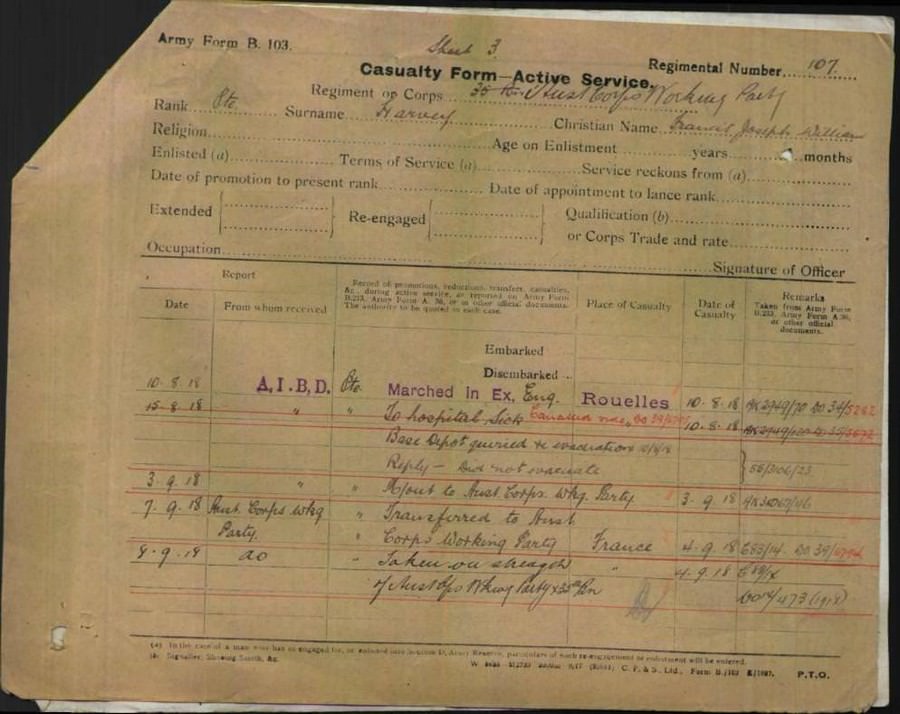 Army Form B. 103.
Sheet 3.
Casualty Form—Active Service.
Regimental Number 107.
Regiment or Corps 35 Bn. Aust Corps Working Party
Rank Pte. Surname Harvey Christian Name Francis Joseph William
Religion Age on Enlistment years months
Enlisted (a) Terms of Service (a) Service reckons from (a)
Date of promotion to present rank Date of appointment to lance rank
Extended Re-engaged Qualification (b)
or Corps Trade and rate
Occupation Signature of Officer
Report
Date From whom received
Record of promotions, reductions, transfers, casualties,
&c., during active service, as reported on Army Form
B.213, Army Form A. 36, or in other official documents.
The authority to be quoted in each case.
Place of Casualty
Date of Casualty
Remarks
Taken from Army Form
B.213, Army Form A.36,
or other official
documents.
Embarked
Disembarked
10.8.18 A.I.B.D. Pte. Marched in Ex. Eng. Rouelles 10.8.18 DO 34/5282
15.8.18 " " To hospital sick 10.8.18
Base Depot queried re evacuation
Reply — Did not evacuate 55/3106/23
3.9.18 " " M/out to Aust. Corps. Wkg. Party 3.9.18
7.9.18 Aust. Corps Wkg " Transferred to Aust
Party. " Corps Working Party France 4.9.18 E83/14. DO 39/
9.9.18 do " Taken on strength " 4.9.18
of Aust Cps Wking Party x 35th Bn 473 (1918)
(a) In the case of a man who has re-engaged for, or enlisted into Section D, Army Reserve, particulars of such re-engagement or enlistment will be entered.
(b) Signaller, Shoeing Smith, &c.
C. P. & S., Ltd., Form B./103
P.T.O.